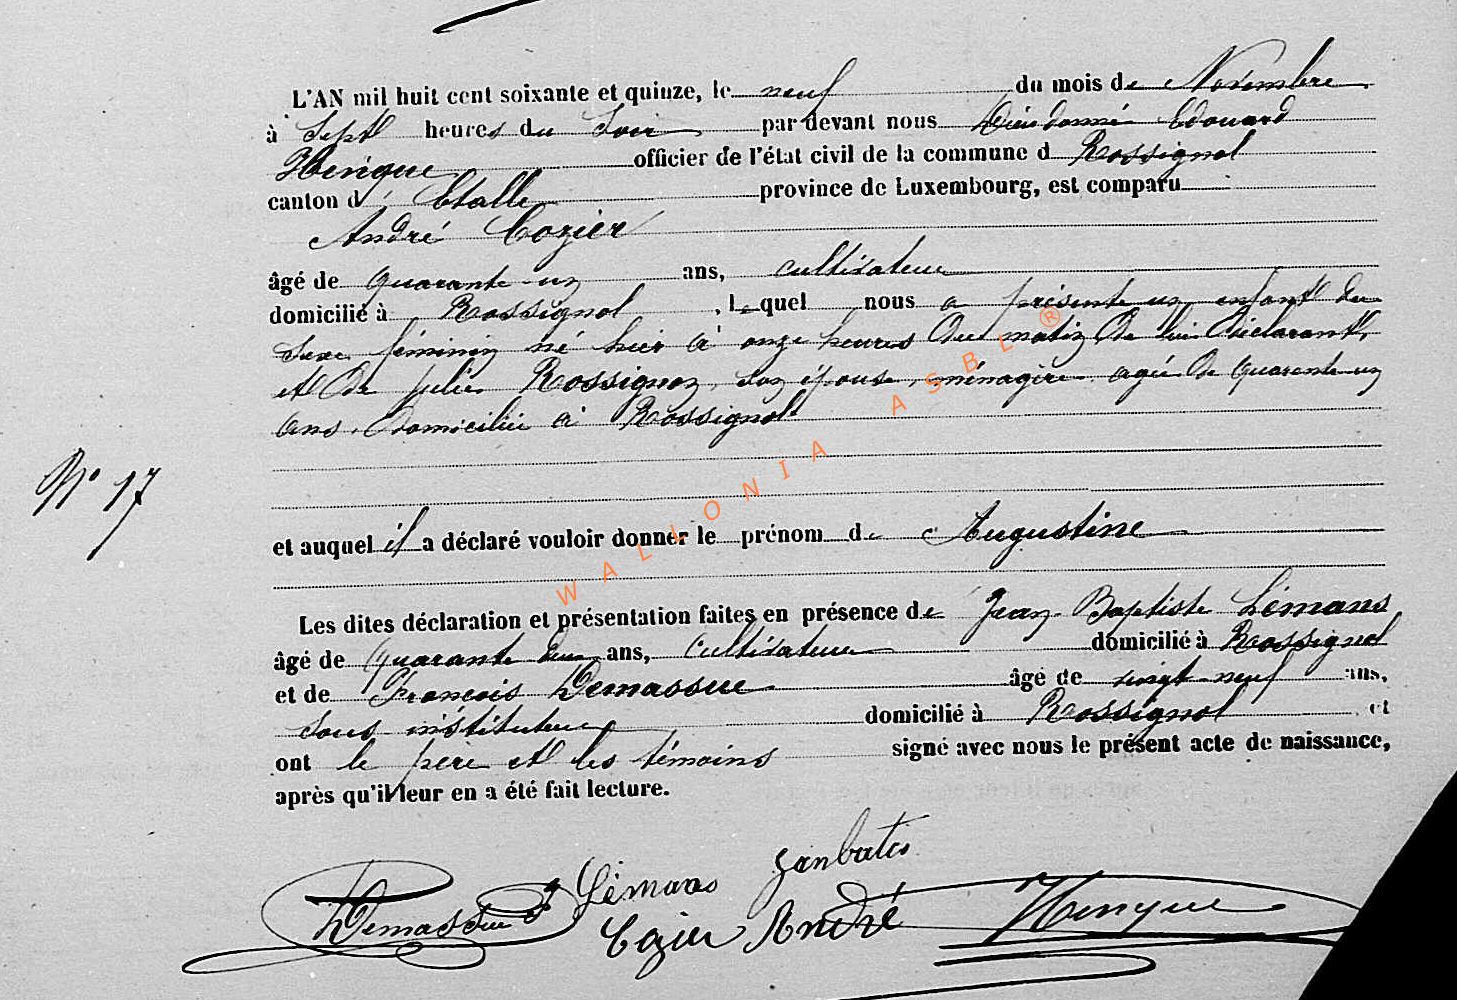 L'AN mil huit cent soixante et quinze, le neuf du mois de Novembre
à Sept heures du Soir par devant nous Dieudonné Edouard
Henique officier de l'état civil de la commune d Rossignol
canton d' Etalle province de Luxembourg, est comparu
André Cozier
âgé de quarante-un ans, cultivateur
domicilié à Rossignol, lequel nous a présenté un enfant du
sexe féminin né hier à onze heures du matin, de lui déclarant,
et de Julie Rossignon, son épouse, ménagère agée de quarante-un
ans, domiciliée à Rossignol
N° 17
et auquel il a déclaré vouloir donner le prénom de Augustine
Les dites déclaration et présentation faites en présence de Jean-Baptiste Lémans
âgé de quarante deux ans, Cultivateur domicilié à Rossignol
et de François Demassue âgé de vingt-neuf ans,
sous instituteur domicilié à Rossignol et
ont le père et les témoins signé avec nous le présent acte de naissance,
après qu'il leur en a été fait lecture.
Lémans Janbatis
Demassue
Cozier André
WALLONIA ASBL ®